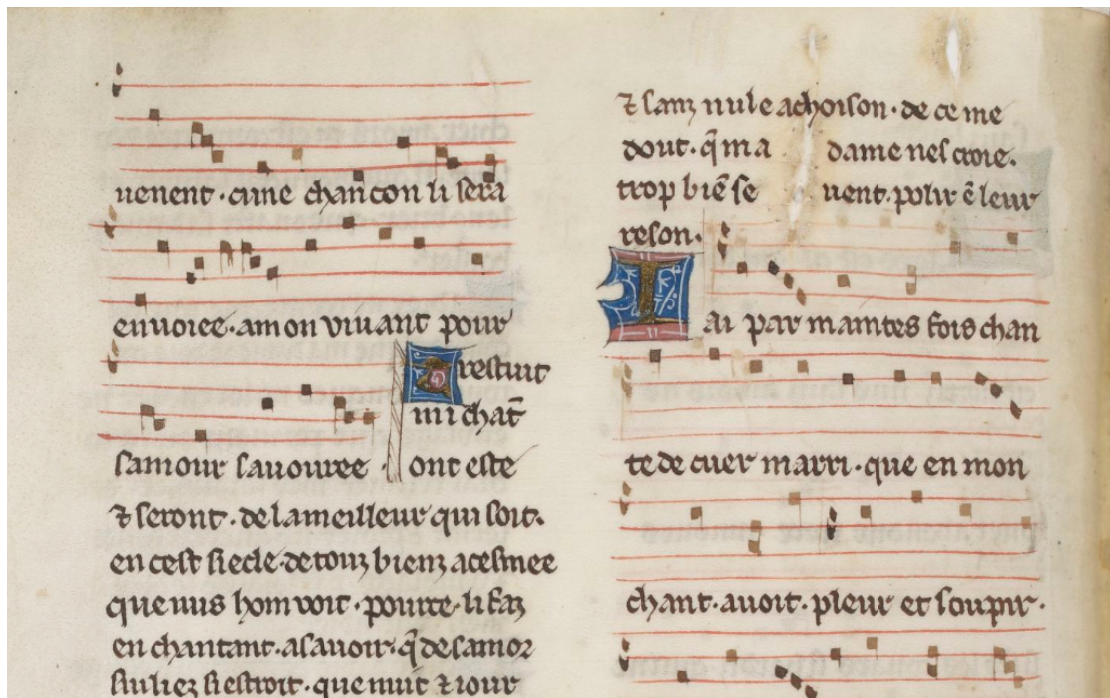 uenent · cune chancon li sera
enuoiee · amon viuant pour
samour sauouree ·
Trestuit
mi chat̃
ont este
⁊ seront · de la meilleur qui soit.
en cest siecle · de touz bienz acesmee
que nus hom voit · pource · li faz
en chantant · a sauoir · q̃ de samor
sui liez si estroit · que nuit ⁊ iour
⁊ sanz nule achoison · de ce me
dout · q̃ ma dame nes croie.
trop biẽ se uent · polir ẽ leur
reson.
Iai par maintes fois chan
te de cuer marri · que en mon
chant · auoit · pleur et soupir ·